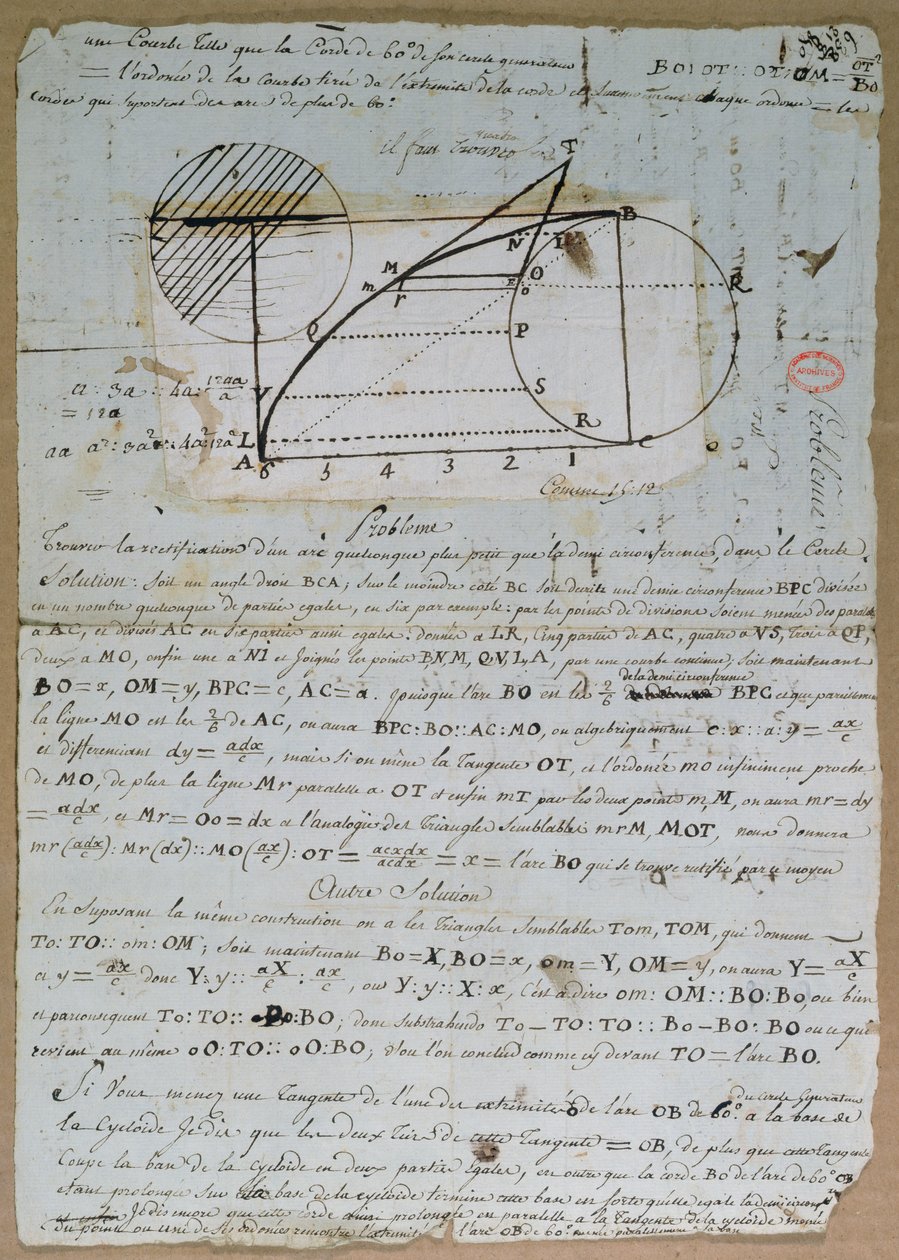 une Courbe telle que la Corde de 60° de son cercle generateur
= l'ordonée de la courbe tirée de l'extremité de la corde et chaque ordonée = les
cordes qui suportent des arcs de plus de 60°
BO : OT :: OT : OM = OT²/BO
il faut trouver
T
B
N I
M O
m r E o R
Q P
V S
L R
A 6 5 4 3 2 1 C
a : 3a :: 4a : 12aa/a
= 12a
aa a² : 3a² :: 4a² : 12a²
Comme 15 : 12
ARCHIVES
Problème
Probleme
Trouver la rectification d'un arc quelconque plus petit que la demi circonference, dans le Cercle.
Solution : soit un angle droit BCA ; sur le moindre coté BC soit decrite une demie circonference BPC divisée
en un nombre quelconque de partie egales, en six par exemple : par les points de divisions soient menés des paralel
a AC, et divisés AC en six partie aussi egales ; donnés a LR, Cinq partie de AC, quatre a VS, trois a QP,
deux a MO, enfin une a NI et joignés les points B, N, M, Q, V, L, A, par une courbe continue ; soit maintenant
BO = x, OM = y, BPC = c, AC = a. puisque l'arc BO est les 2/6 de la demi circonference BPC et que pareillement
la ligne MO est les 2/6 de AC, on aura BPC : BO :: AC : MO, ou algebriquement c : x :: a : y = ax/c
et differenciant dy = adx/c, mais si on mène la tangente OT, et l'ordonée mo infiniment proche
de MO, de plus la ligne Mr paralelle a OT et enfin mT par les deux points m M, on aura mr = dy
= adx/c, et Mr = Oo = dx et l'analogie des triangles semblables mrM, MOT, nous donnera
mr (adx/c) : Mr (dx) :: MO (ax/c) : OT = acxdx/acdx = x = l'arc BO qui se trouve rectifié par ce moyen
Autre Solution
En suposant la même construction on a les triangles semblables Tom, TOM, qui donnent
To : TO :: om : OM ; soit maintenant Bo = X, BO = x, om = Y, OM = y, on aura Y = aX/c
et y = ax/c donc Y : y :: aX/c : ax/c, ou Y : y :: X : x, C'est a dire om : OM :: BO : Bo, ou bien
et parconsequent To : TO :: Bo : BO ; donc substrahendo To − TO : TO :: Bo − BO : BO ou ce qui
revient au même oO : TO :: oO : BO ; d'ou l'on conclud comme cy devant TO = l'arc BO.
Si Vous menez une tangente de l'une des extremités o de l'arc OB de 60° du cercle generateur a la base de
la Cycloïde Je dis que les deux tiers de cette tangente = OB, de plus que cette tangente
Coupe la base de la Cycloïde en deux partie egales, en outre que la corde BO de l'arc de 60° OB
etant prolongée sur la base de la cycloïde termine cette base en sorte qu'elle egale la demi circonf
Je dis encore que cette corde ainsi prolongée en paralelle a la tangente de la cycloïde menée
du point ou une de ses ordonées rencontre l'extremité l'arc OB de 60° menée paralellement a la base